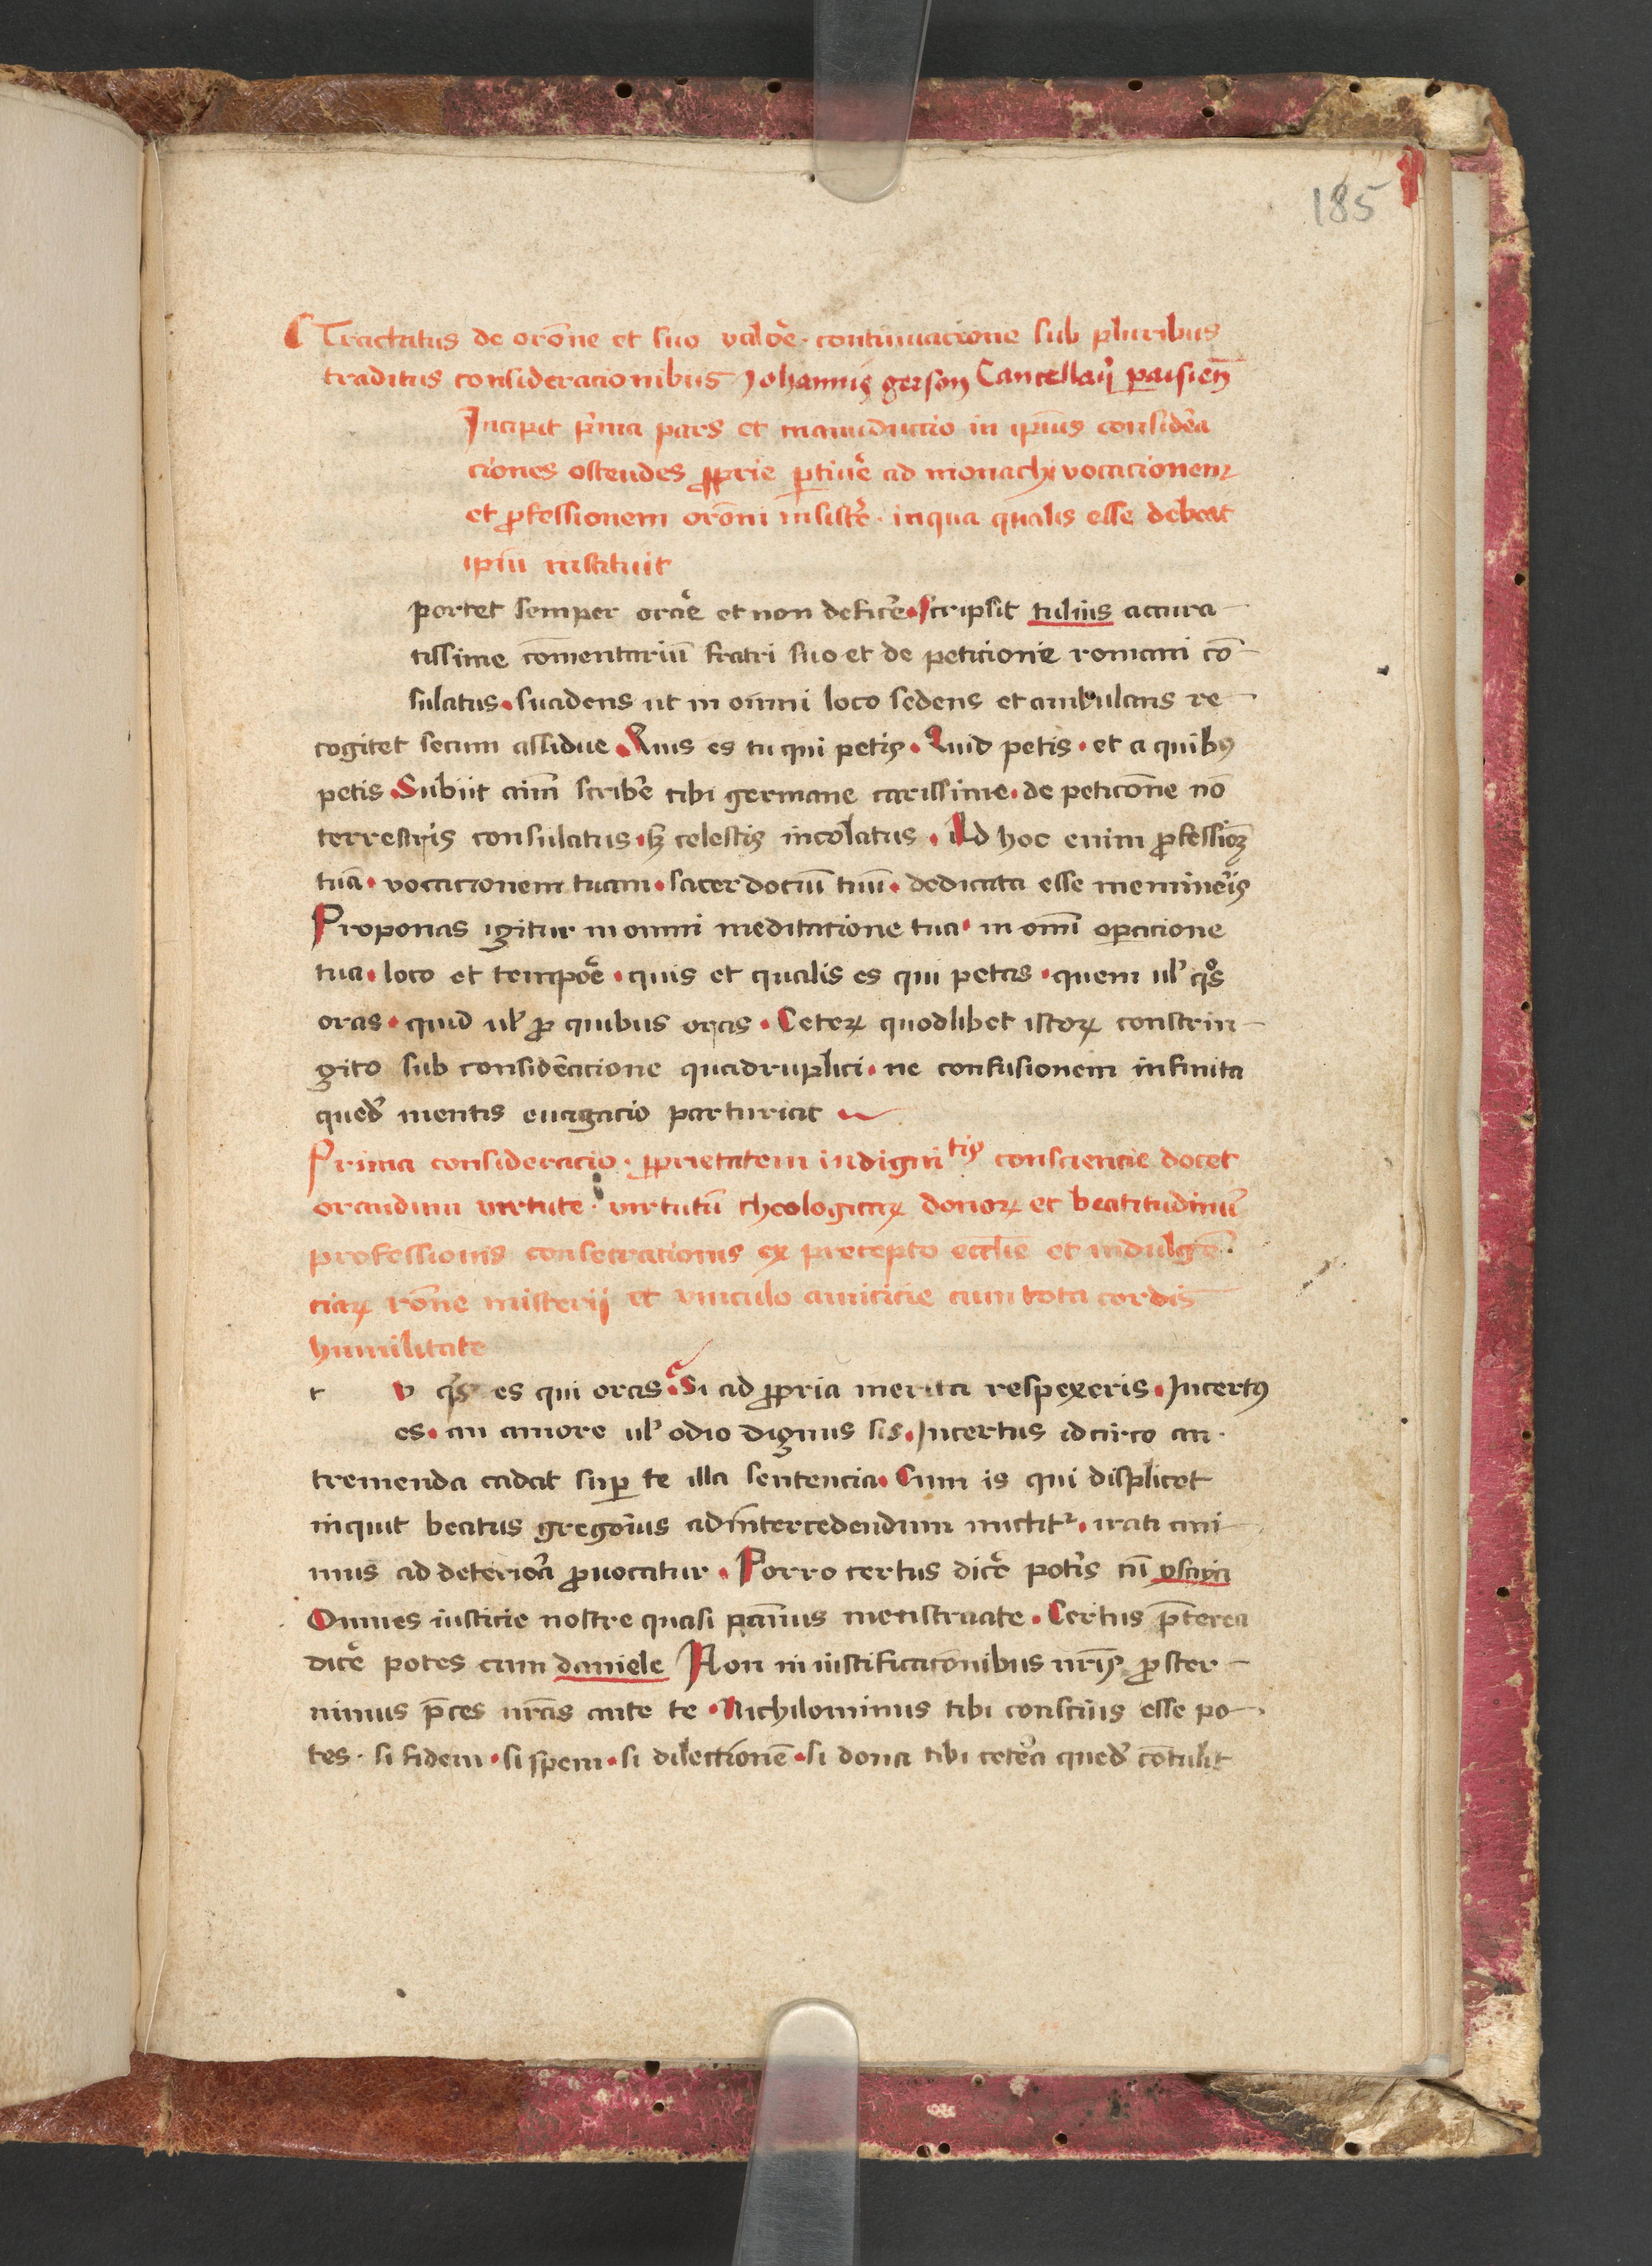 185
Tractatus de orōne et suo valōe · continuacione sub pluribus
traditus consideracionibus Johannis gerson Cancellarij parisieñ
Incipit p̄ma pars et manuductio in ip̄ius considēa
ciones ostendes ꝓprie ꝑtinē ad monachi vocacionem
et ꝓfessionem orōni insistē · in qua qualis esse debeat
ip̄m instituit
portet semper oraē et non deficē · Scripsit tulius accura-
tissime cōmentariū fratri suo et de peticione romani cō-
sulatus · suadens ut in omni loco sedens et ambulans re-
cogitet secum assidue · Quis es tu qui petis · Quid petis · et a quibꝰ
petis · Subiit aīm scribē tibi germane carissime · de peticōne nō
terrestris consulatus · sꝫ celestis incolatus · Ad hoc enim ꝓfessiōꝫ
tuā · vocacionem tuam · sacerdociū tuū · dedicata esse meminēis
Proponas igitur in omni meditatione tua · in omī oꝑacione
tua · loco et tempoē · quis et qualis es qui petas · quem ul' qͦs
oras · quid ul' ꝓ quibus oras · Ceteꝝ quodlibet istoꝝ constrin-
gito sub considēacione quadruplici · ne confusionem infinita
qued' mentis euagacio parturiat
Prima consideracio · ꝓprietatem indigniᵗⁱˢ consciencie docet
orandum virtute · virtutū theologicaꝝ donoꝝ et beatitudinū
professionis consecracionis ex precepto ecclīe et indulgē
ciaꝝ rōne misterij et vinculo amicicie cum tota cordis
humilitate
t v qͥs es qui oras · Si ad ꝓpria merita respexeris · Incertꝰ
es · an amore ul' odio dignus sis · Incertus idcirco an ·
tremenda cadat suꝑ te illa sentencia · Cum is qui displicet
inquit beatus gregōius ad intercedendum mictit² · irati ani
mus ad deterioā ꝓuocatur · Porro certus dicē potis cū ysaya
Omnes iusticie nostre quasi pānus menstruate · Certus p̄terea
dicē potes cum daniele Non in iustificacōnibus nr̄is ꝓster-
nimus p̄ces nr̄as ante te · Nichilominus tibi conscius esse po-
tes · si fidem · si spem · si dilectionē · si dona tibi cetēa qued' cōtulit